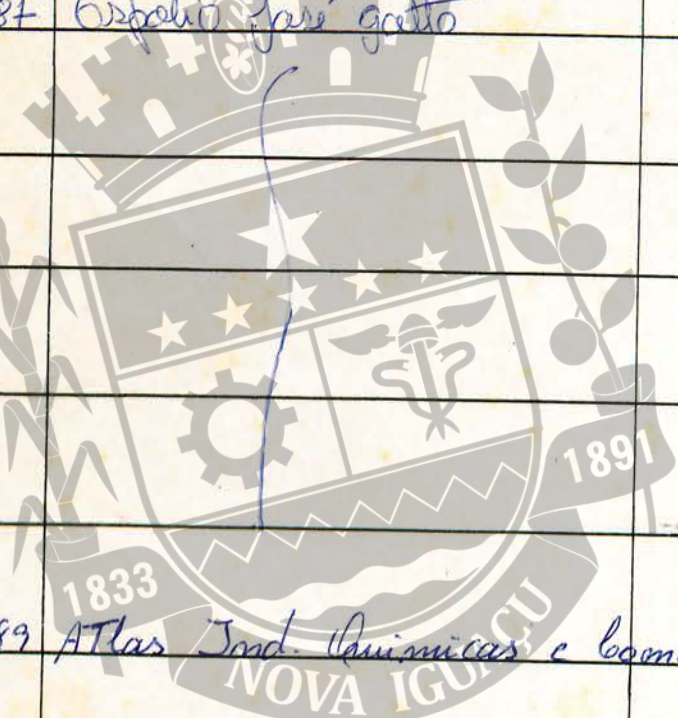 87 Espolio José gatto
1891
1833
89 ATlas Ind. Quimicas e Com
NOVA IGUAÇU